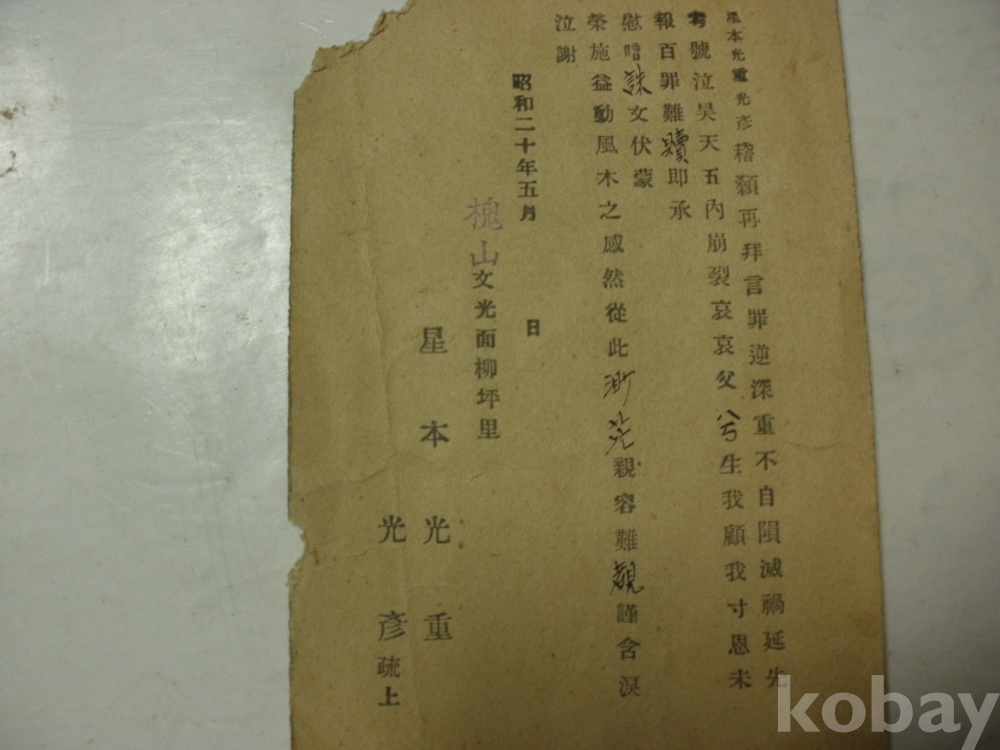 星本光重光彥稽顙再拜言罪逆深重不自隕滅禍延先
考號泣昊天五內崩裂哀哀父兮生我顧我寸恩未
報百罪難贖即承
慰唁誄文伏蒙
榮施益動風木之感然從此渺茫親容難覩謹含淚
泣謝
昭和二十年五月 日
槐山文光面柳坪里
星本光重
光彥疏上
kobay